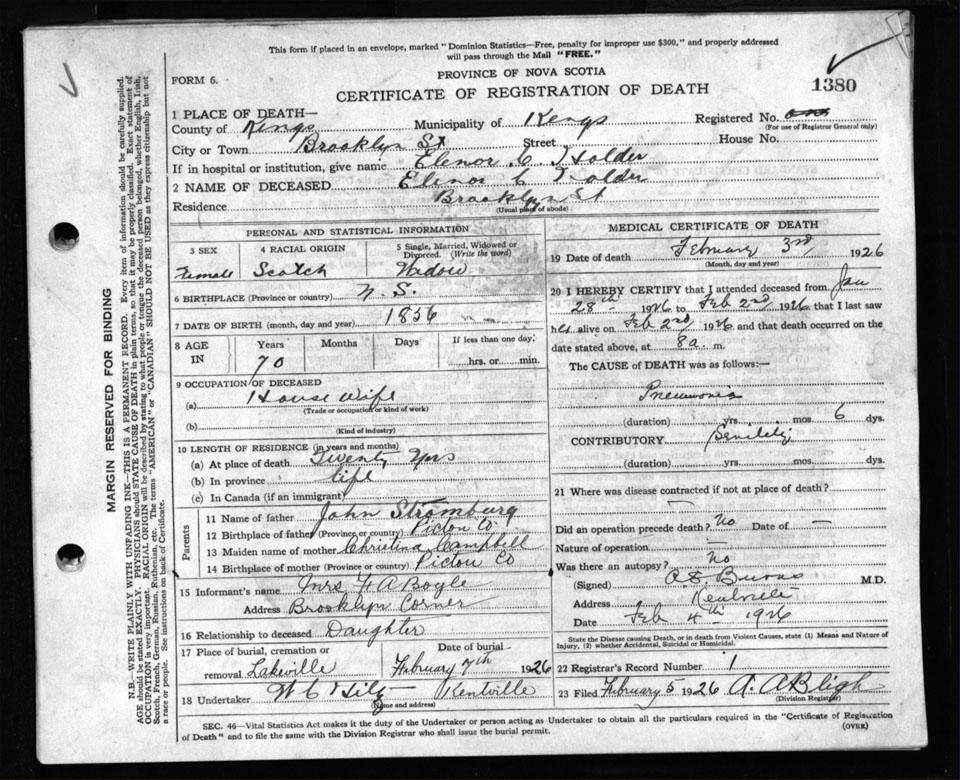 This form if placed in an envelope, marked "Dominion Statistics—Free, penalty for improper use $300," and properly addressed
will pass through the Mail "FREE."
FORM 6.
PROVINCE OF NOVA SCOTIA
1380
CERTIFICATE OF REGISTRATION OF DEATH
1 PLACE OF DEATH—
County of Kings Municipality of Kings Registered No.
(For use of Registrar General only)
City or Town Brooklyn St Street House No.
If in hospital or institution, give name Elenor C Holder
2 NAME OF DECEASED Elenor C Holder
Residence Brooklyn St
(Usual place of abode)
PERSONAL AND STATISTICAL INFORMATION
3 SEX 4 RACIAL ORIGIN 5 Single, Married, Widowed or Divorced. (Write the word)
Female Scotch Widow
6 BIRTHPLACE (Province or country) N. S.
7 DATE OF BIRTH (month, day and year) 1856
8 AGE IN Years Months Days If less than one day,
70 hrs. or min.
9 OCCUPATION OF DECEASED
(a) House Wife
(Trade or occupation or kind of work)
(b)
(Kind of industry)
10 LENGTH OF RESIDENCE (in years and months)
(a) At place of death Twenty Yrs
(b) In province life
(c) In Canada (if an immigrant)
Parents
11 Name of father John Stromburg
12 Birthplace of father (Province or country) Pictou Co
13 Maiden name of mother Christina Campbell
14 Birthplace of mother (Province or country) Pictou Co
15 Informant's name Mrs F A Boyle
Address Brooklyn Corner
16 Relationship to deceased Daughter
17 Place of burial, cremation or Date of burial
removal Lakeville February 7th 1926
18 Undertaker W C Kentville
(Name and address)
MEDICAL CERTIFICATE OF DEATH
19 Date of death February 3rd 1926
(Month, day and year)
20 I HEREBY CERTIFY that I attended deceased from Jan
28th 1926 to Feb 2nd 1926 that I last saw
her alive on Feb 2nd 1926 and that death occurred on the
date stated above, at 8 a. m.
The CAUSE of DEATH was as follows:—
Pneumonia
(duration) yrs. mos 6 dys.
CONTRIBUTORY Senility
(duration) yrs. mos. dys.
21 Where was disease contracted if not at place of death?
—
Did an operation precede death? No Date of —
Nature of operation —
Was there an autopsy? No
(Signed) Burns M.D.
Address Kentville
Date Feb 4th 1926
State the Disease causing Death, or in death from Violent Causes, state (1) Means and Nature of
Injury, (2) whether Accidental, Suicidal or Homicidal.
22 Registrar's Record Number 1
23 Filed February 5 1926 A. A Bligh
(Division Registrar)
SEC. 46—Vital Statistics Act makes it the duty of the Undertaker or person acting as Undertaker to obtain all the particulars required in the "Certificate of Registration
of Death" and to file the same with the Division Registrar who shall issue the burial permit.
(OVER)
MARGIN RESERVED FOR BINDING
N.B.—WRITE PLAINLY WITH UNFADING INK—THIS IS A PERMANENT RECORD. Every item of information should be carefully supplied.
AGE should be stated EXACTLY. PHYSICIANS should STATE CAUSE OF DEATH in plain terms, so that it may be properly classified. Exact statement of
OCCUPATION is very important. RACIAL ORIGIN will be described by stating to what people or tongue the deceased person belonged, whether English, Irish,
Scotch, French, German, Russian, Ruthenian, etc. The terms "AMERICAN" or "CANADIAN" SHOULD NOT BE USED as they express citizenship but not
a race or people. See instructions on back of Certificate.